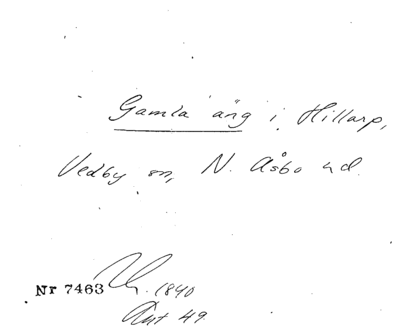 Gamla äng i Hillarp,
Vedby sn, N. Åsbo hd.
Nr 7463
1840
Ant 49